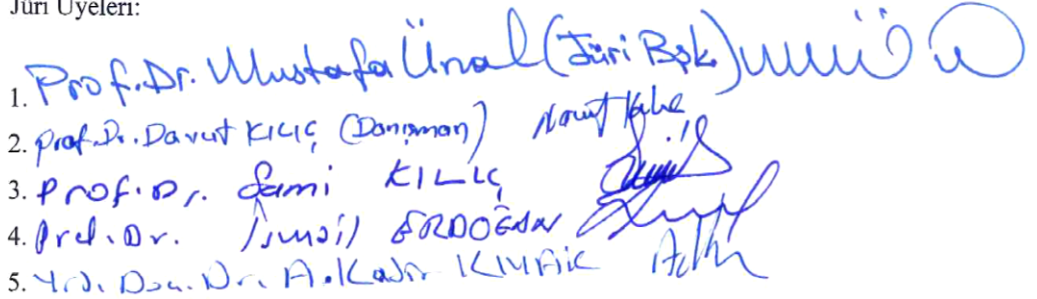 Jüri Üyeleri:
1. Prof.Dr. Mustafa Ünal (Jüri Bşk.)
2. Prof.Dr. Davut KILIÇ (Danışman)
3. Prof.Dr. Sami KILIÇ
4. Prof.Dr. İsmail ERDOĞAN
5. Yrd. Doç. Dr. A.Kadir KIYAK